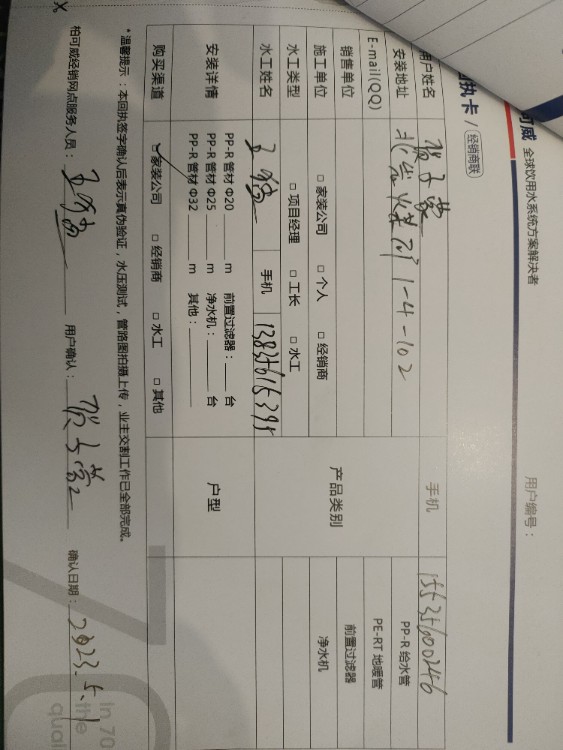 可威 全球饮用水系统方案解决者
回执卡 / 经销商联
用户编号：
用户姓名
手机 15535600246
安装地址 1-4-102
E-mail(QQ)
销售单位
施工单位 □ 家装公司 □ 个人 □ 经销商
水工类型 □ 项目经理 □ 工长 □ 水工
产品类别
PP-R 给水管
PE-RT 地暖管
前置过滤器
净水机
水工姓名 手机
安装详情
PP-R 管材 Φ20 m 前置过滤器： 台
PP-R 管材 Φ25 m 净水机： 台
PP-R 管材 Φ32 m 其他：
户型
购买渠道 □ 家装公司 □ 经销商 □ 水工 □ 其他
*温馨提示：本回执签字确认后表示真伪验证，水压测试，管路图拍摄上传，业主交割工作已全部完成。
柏可威经销网点服务人员： 用户确认： 确认日期：2023.5.1
In 70
the
qual